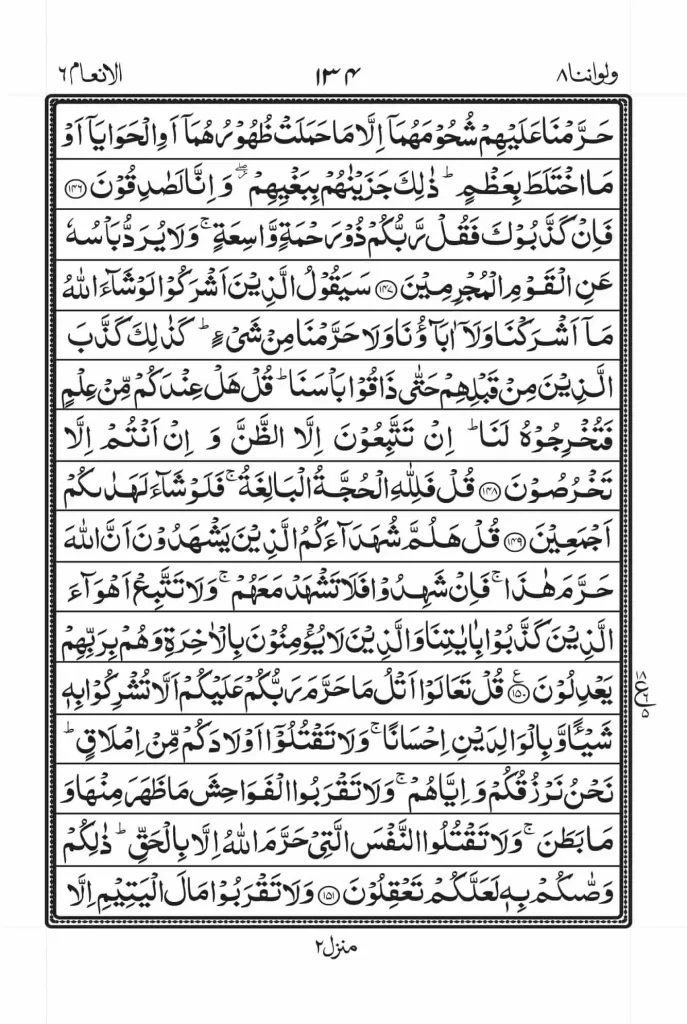 ولواننا ٨
١٣۴
الانعام ٦
حَرَّمْنَا عَلَيْهِمْ شُحُوْمَهُمَاۤ اِلَّا مَا حَمَلَتْ ظُهُوْرُهُمَاۤ اَوِ الْحَوَايَاۤ اَوْ
مَا اخْتَلَطَ بِعَظْمٍ ؕ ذٰلِكَ جَزَيْنٰهُمْ بِبَغْيِهِمْ ۖ وَ اِنَّا لَصٰدِقُوْنَ ﴿۱۴۶﴾
فَاِنْ كَذَّبُوْكَ فَقُلْ رَّبُّكُمْ ذُوْ رَحْمَةٍ وَّاسِعَةٍ ۚ وَلَا يُرَدُّ بَاْسُهٗ
عَنِ الْقَوْمِ الْمُجْرِمِيْنَ ﴿۱۴۷﴾ سَيَقُوْلُ الَّذِيْنَ اَشْرَكُوْا لَوْ شَآءَ اللّٰهُ
مَاۤ اَشْرَكْنَا وَلَاۤ اٰبَآؤُنَا وَلَا حَرَّمْنَا مِنْ شَيْءٍ ؕ كَذٰلِكَ كَذَّبَ
الَّذِيْنَ مِنْ قَبْلِهِمْ حَتّٰى ذَاقُوْا بَاْسَنَا ؕ قُلْ هَلْ عِنْدَكُمْ مِّنْ عِلْمٍ
فَتُخْرِجُوْهُ لَنَا ؕ اِنْ تَتَّبِعُوْنَ اِلَّا الظَّنَّ وَ اِنْ اَنْتُمْ اِلَّا
تَخْرُصُوْنَ ﴿۱۴۸﴾ قُلْ فَلِلّٰهِ الْحُجَّةُ الْبَالِغَةُ ۚ فَلَوْ شَآءَ لَهَدٰىكُمْ
اَجْمَعِيْنَ ﴿۱۴۹﴾ قُلْ هَلُمَّ شُهَدَآءَكُمُ الَّذِيْنَ يَشْهَدُوْنَ اَنَّ اللّٰهَ
حَرَّمَ هٰذَا ۚ فَاِنْ شَهِدُوْا فَلَا تَشْهَدْ مَعَهُمْ ۚ وَلَا تَتَّبِعْ اَهْوَآءَ
الَّذِيْنَ كَذَّبُوْا بِاٰيٰتِنَا وَالَّذِيْنَ لَا يُؤْمِنُوْنَ بِالْاٰخِرَةِ وَهُمْ بِرَبِّهِمْ
يَعْدِلُوْنَ ﴿۱۵۰﴾ قُلْ تَعَالَوْا اَتْلُ مَا حَرَّمَ رَبُّكُمْ عَلَيْكُمْ اَلَّا تُشْرِكُوْا بِهٖ
شَيْـًٔا وَّ بِالْوَالِدَيْنِ اِحْسَانًا ۚ وَلَا تَقْتُلُوْۤا اَوْلَادَكُمْ مِّنْ اِمْلَاقٍ ؕ
نَحْنُ نَرْزُقُكُمْ وَ اِيَّاهُمْ ۚ وَلَا تَقْرَبُوا الْفَوَاحِشَ مَا ظَهَرَ مِنْهَا وَ
مَا بَطَنَ ۚ وَلَا تَقْتُلُوا النَّفْسَ الَّتِيْ حَرَّمَ اللّٰهُ اِلَّا بِالْحَقِّ ؕ ذٰلِكُمْ
وَصّٰىكُمْ بِهٖ لَعَلَّكُمْ تَعْقِلُوْنَ ﴿۱۵۱﴾ وَلَا تَقْرَبُوْا مَالَ الْيَتِيْمِ اِلَّا
منزل ٢